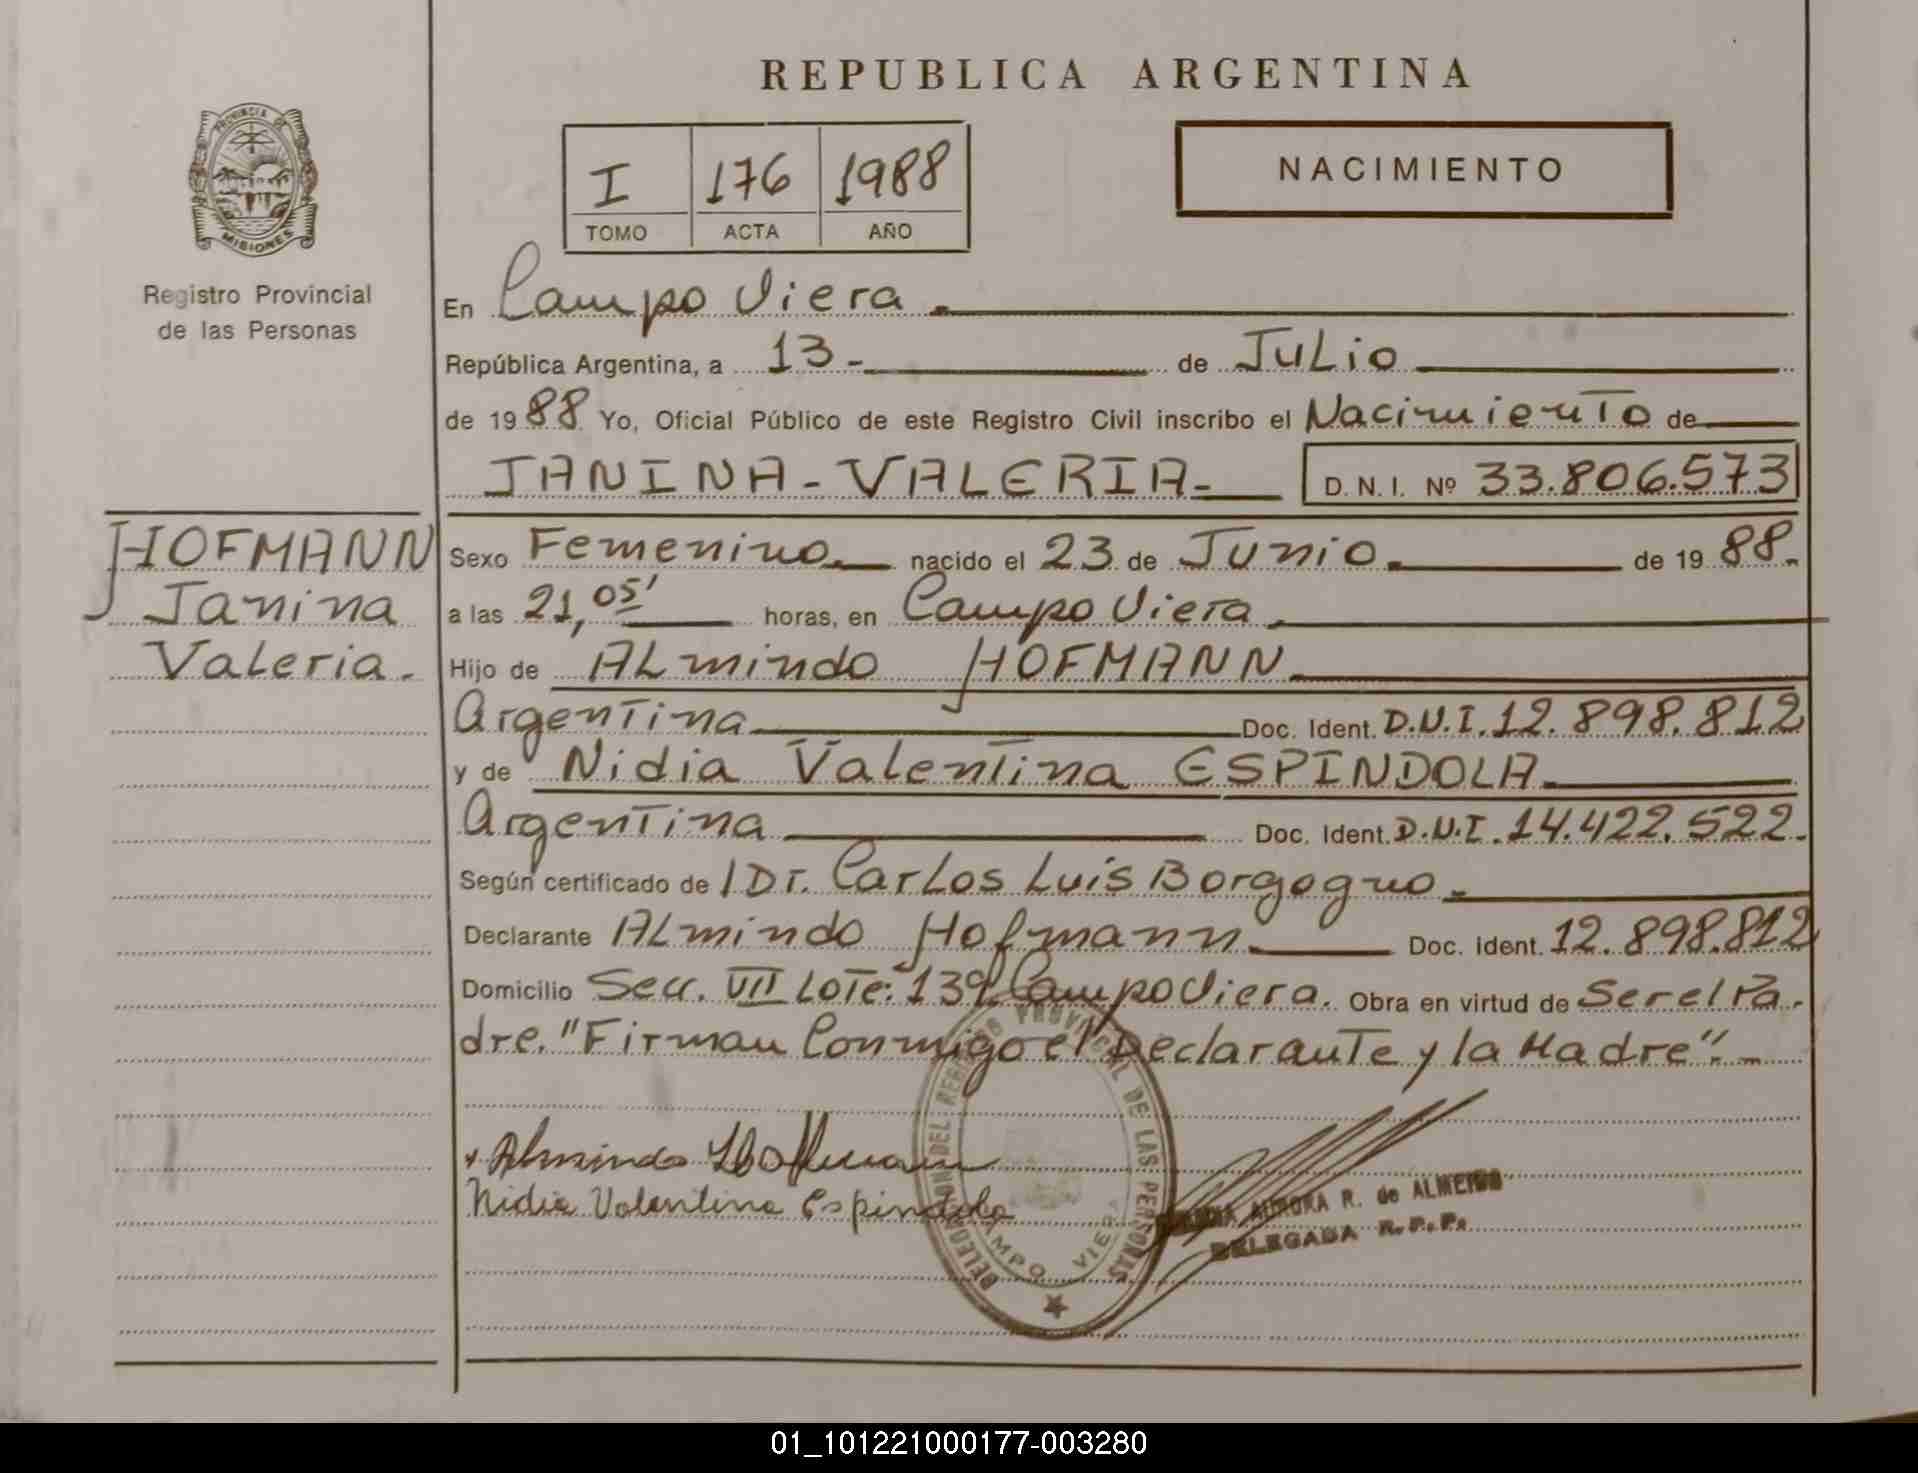 REPUBLICA ARGENTINA
PROVINCIA DE
MISIONES
Registro Provincial
de las Personas
I 176 1988
TOMO ACTA AÑO
NACIMIENTO
En Campo Viera.
República Argentina, a 13- de JULio
de 1988 Yo, Oficial Público de este Registro Civil inscribo el Nacimiento de
JANINA-VALERIA- D. N. I. Nº 33.806.573
HOFMANN
Janina
Valeria.
Sexo Femenino. nacido el 23 de Junio. de 1988.
a las 21,05' horas, en Campo Viera.
Hijo de Almindo HOFMANN
Argentina Doc. Ident. D.N.I. 12.898.812
y de Nidia Valentina ESPINDOLA.
Argentina Doc. Ident. D.N.I. 14.422.522.
Según certificado de / Dr. Carlos Luis Borgogno.
Declarante Almindo Hofmann. Doc. Ident. 12.898.812
Domicilio Secc. VII Lote: 139 Campo Viera. Obra en virtud de Ser el Pa-
dre. "Firman Conmigo el Declarante y la Madre".-
Almindo Hofmann
Nidia Valentina Espindola
DELEGACION DEL REGISTRO PROVINCIAL DE LAS PERSONAS
CAMPO VIERA
AURORA R. de ALMEIDA
DELEGADA R.P.P.
01_101221000177-003280